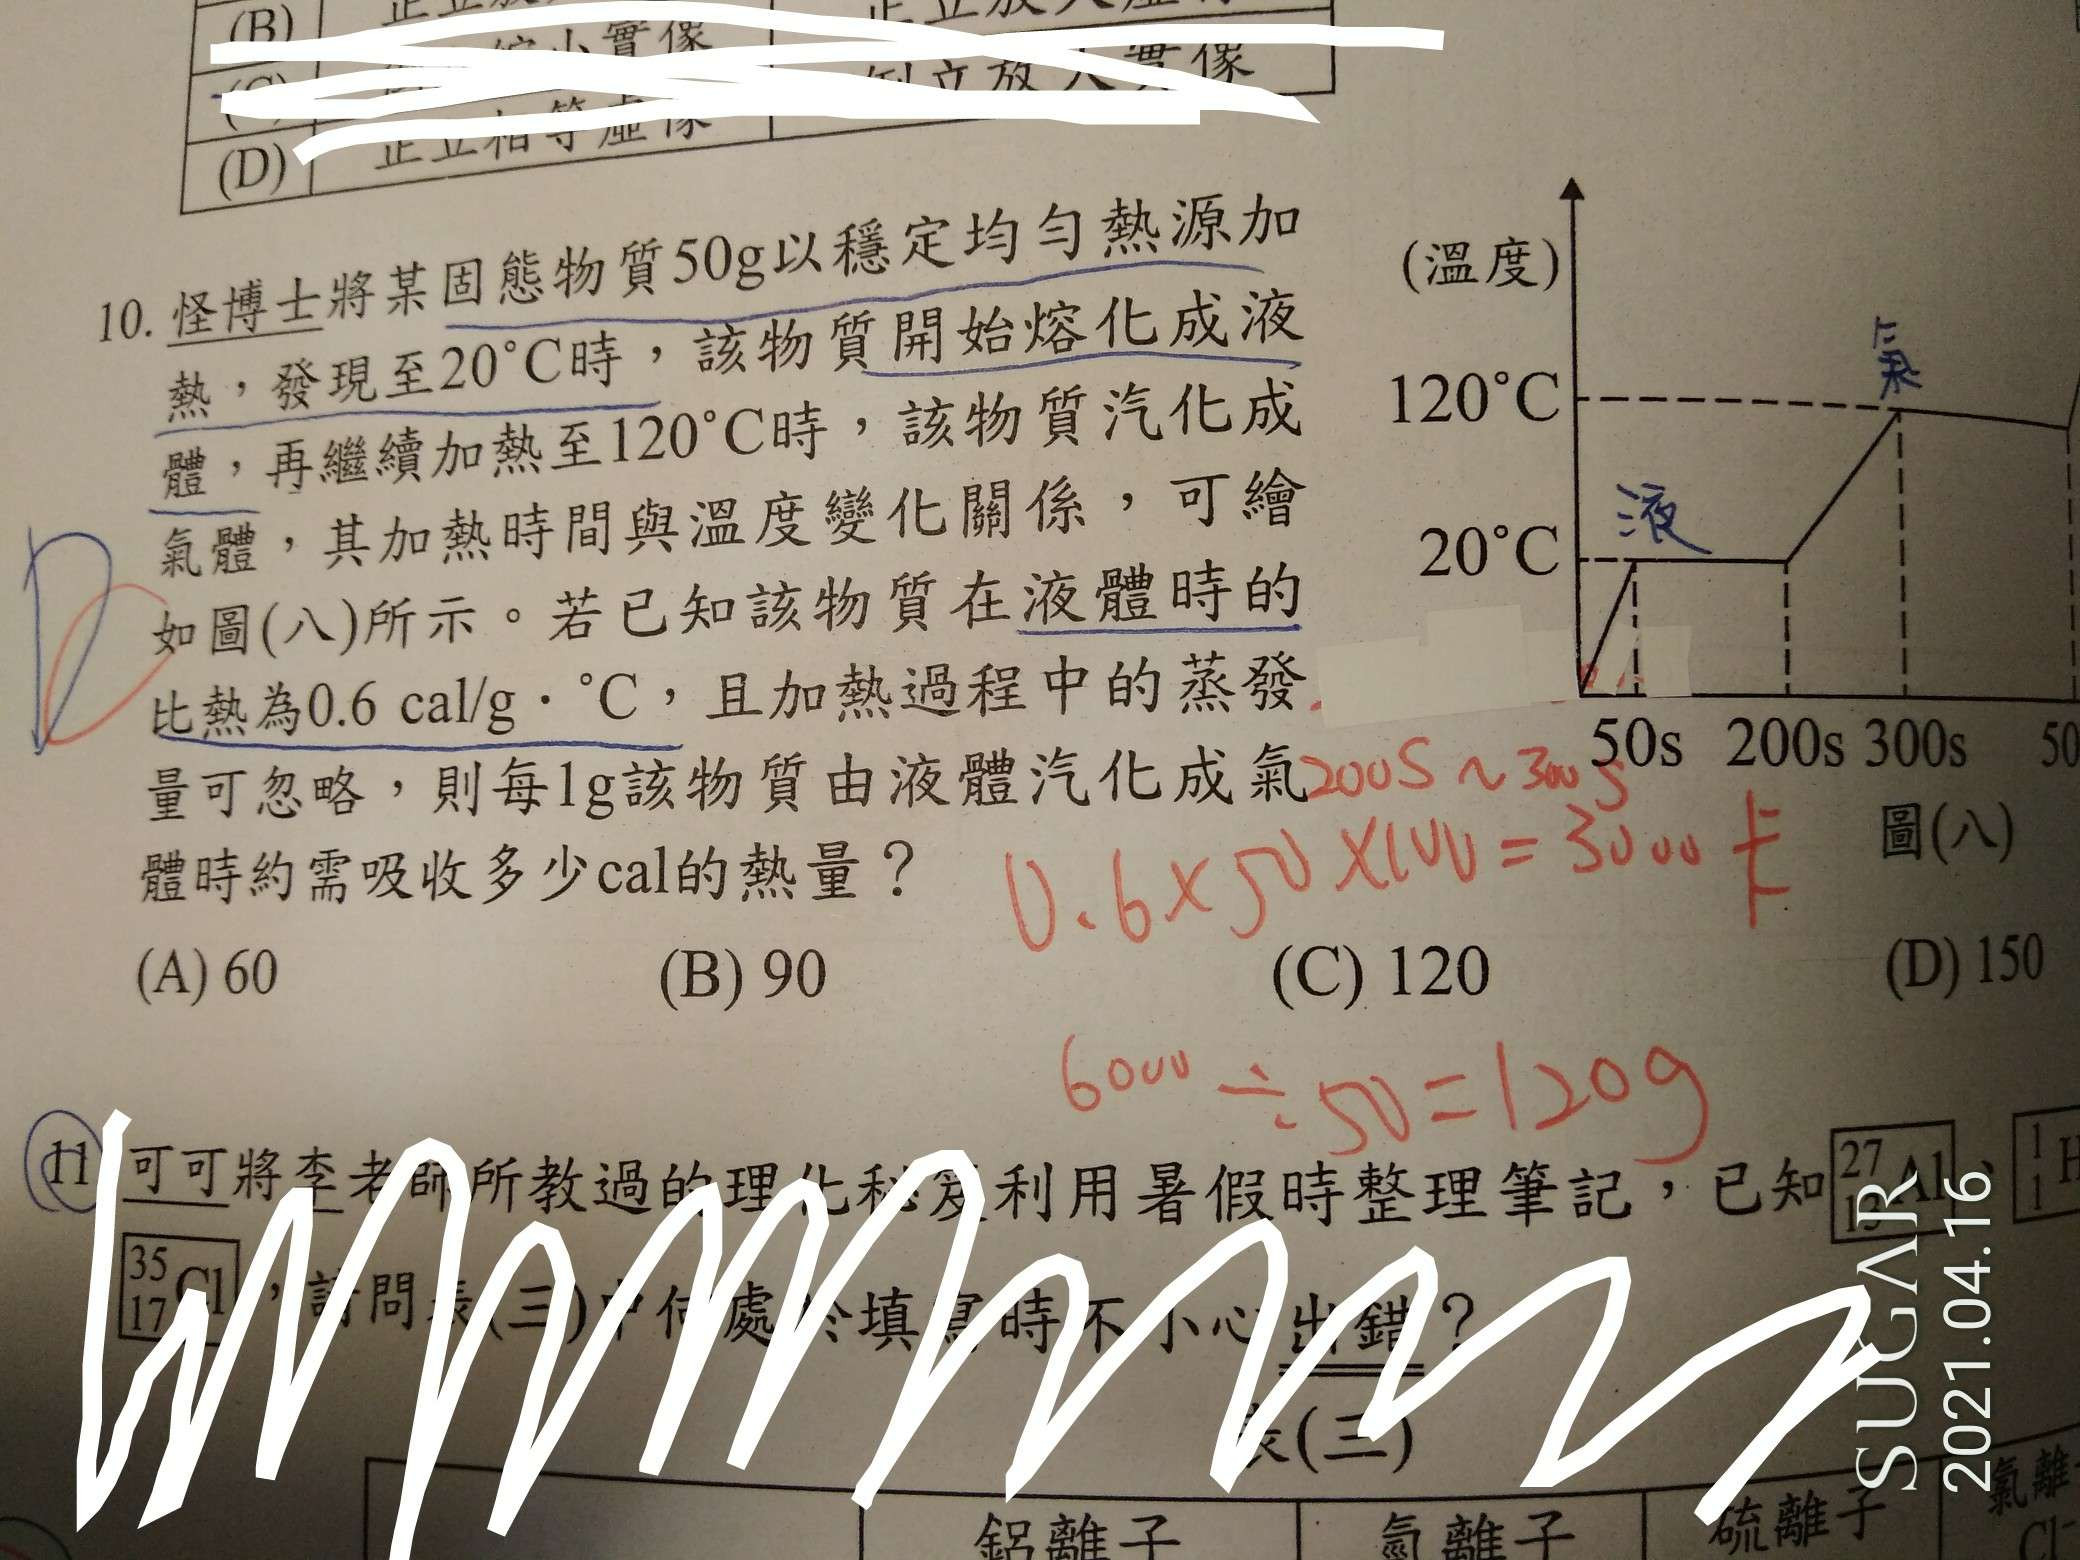 (B)
(D)
10. 怪博士將某固態物質50g以穩定均勻熱源加
熱，發現至20°C時，該物質開始熔化成液
體，再繼續加熱至120°C時，該物質汽化成
氣體，其加熱時間與溫度變化關係，可繪
如圖(八)所示。若已知該物質在液體時的
比熱為0.6 cal/g·°C，且加熱過程中的蒸發
量可忽略，則每1g該物質由液體汽化成氣
體時約需吸收多少cal的熱量？
(溫度)
120°C
20°C
液
50s 200s 300s 50
圖(八)
200S ~ 300s
0.6×50×100=3000卡
(A) 60 (B) 90 (C) 120 (D) 150
6000÷50=120g
D
11 可可將李老師所教過的理化秘笈利用暑假時整理筆記，已知 27 13 Al、 1 1 H
35 17 Cl，請問表(三)中何處於填寫時不小心出錯？
表(三)
鋁離子
硫離子
SUGAR
2021.04.16